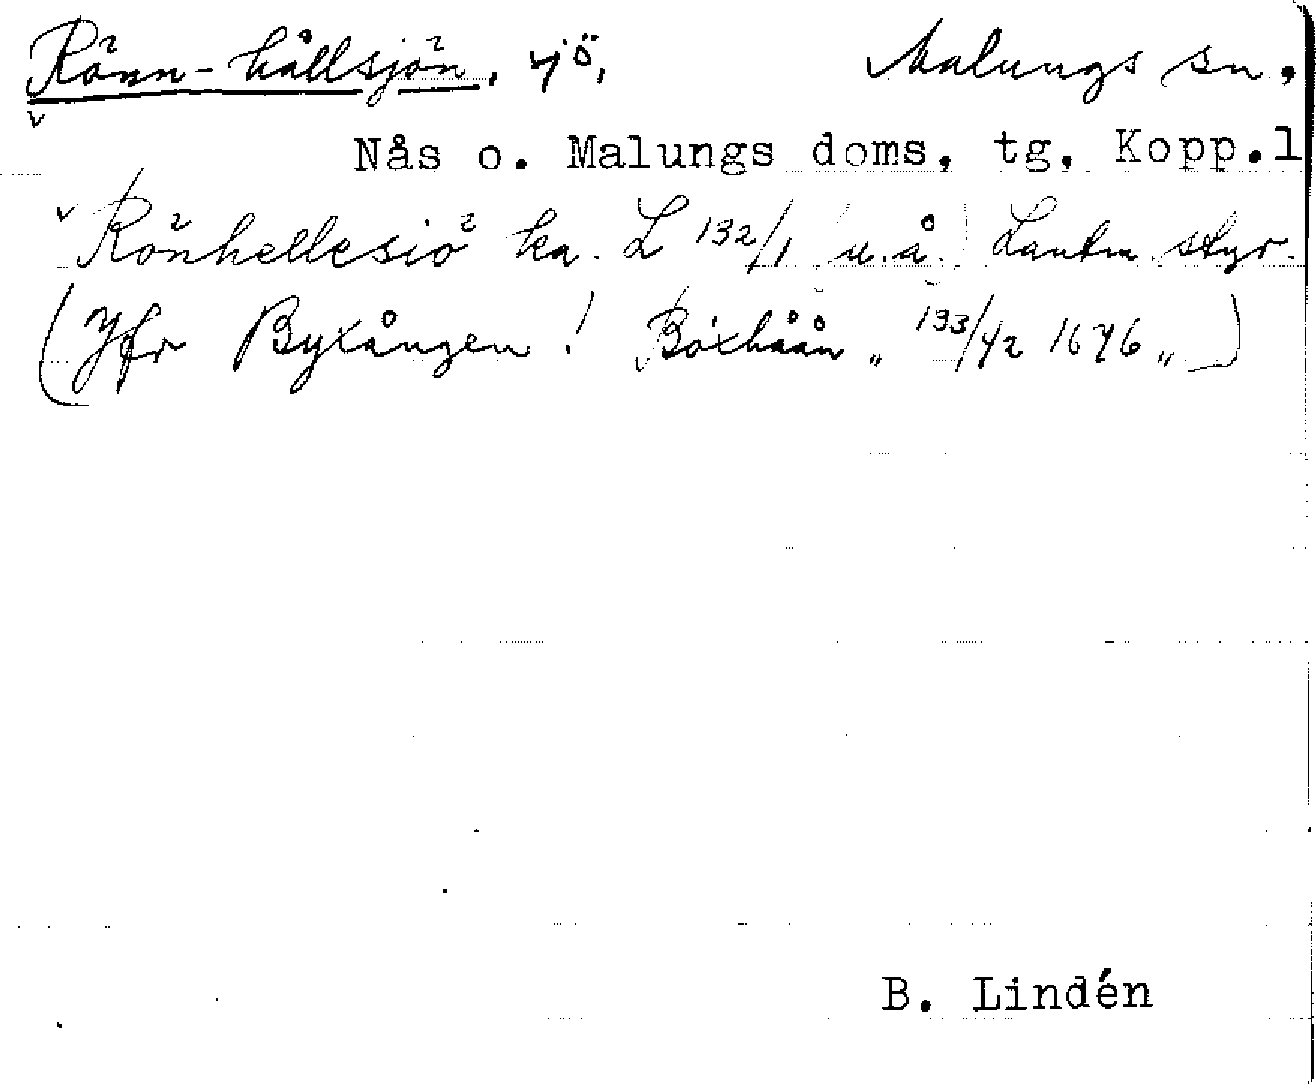 Rönn-hållsjön, sjö, Malungs sn.
Nås o. Malungs doms. tg. Kopp.l
Rönhellesiö ka. L 132/1 (u.å.) Lantm. styr.
(Jfr Byxången! Böxhåån „ 133/42 1696 „ )
B. Lindén